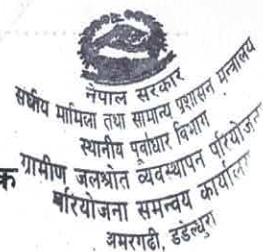 नेपाल सरकार
संघीय मामिला तथा सामान्य प्रशासन मन्त्रालय
स्थानीय पूर्वाधार विभाग
ग्रामीण जलश्रोत व्यवस्थापन परियोजना
परियोजना समन्वय कार्यालय
अमरगढी, डडेल्धुरा
क